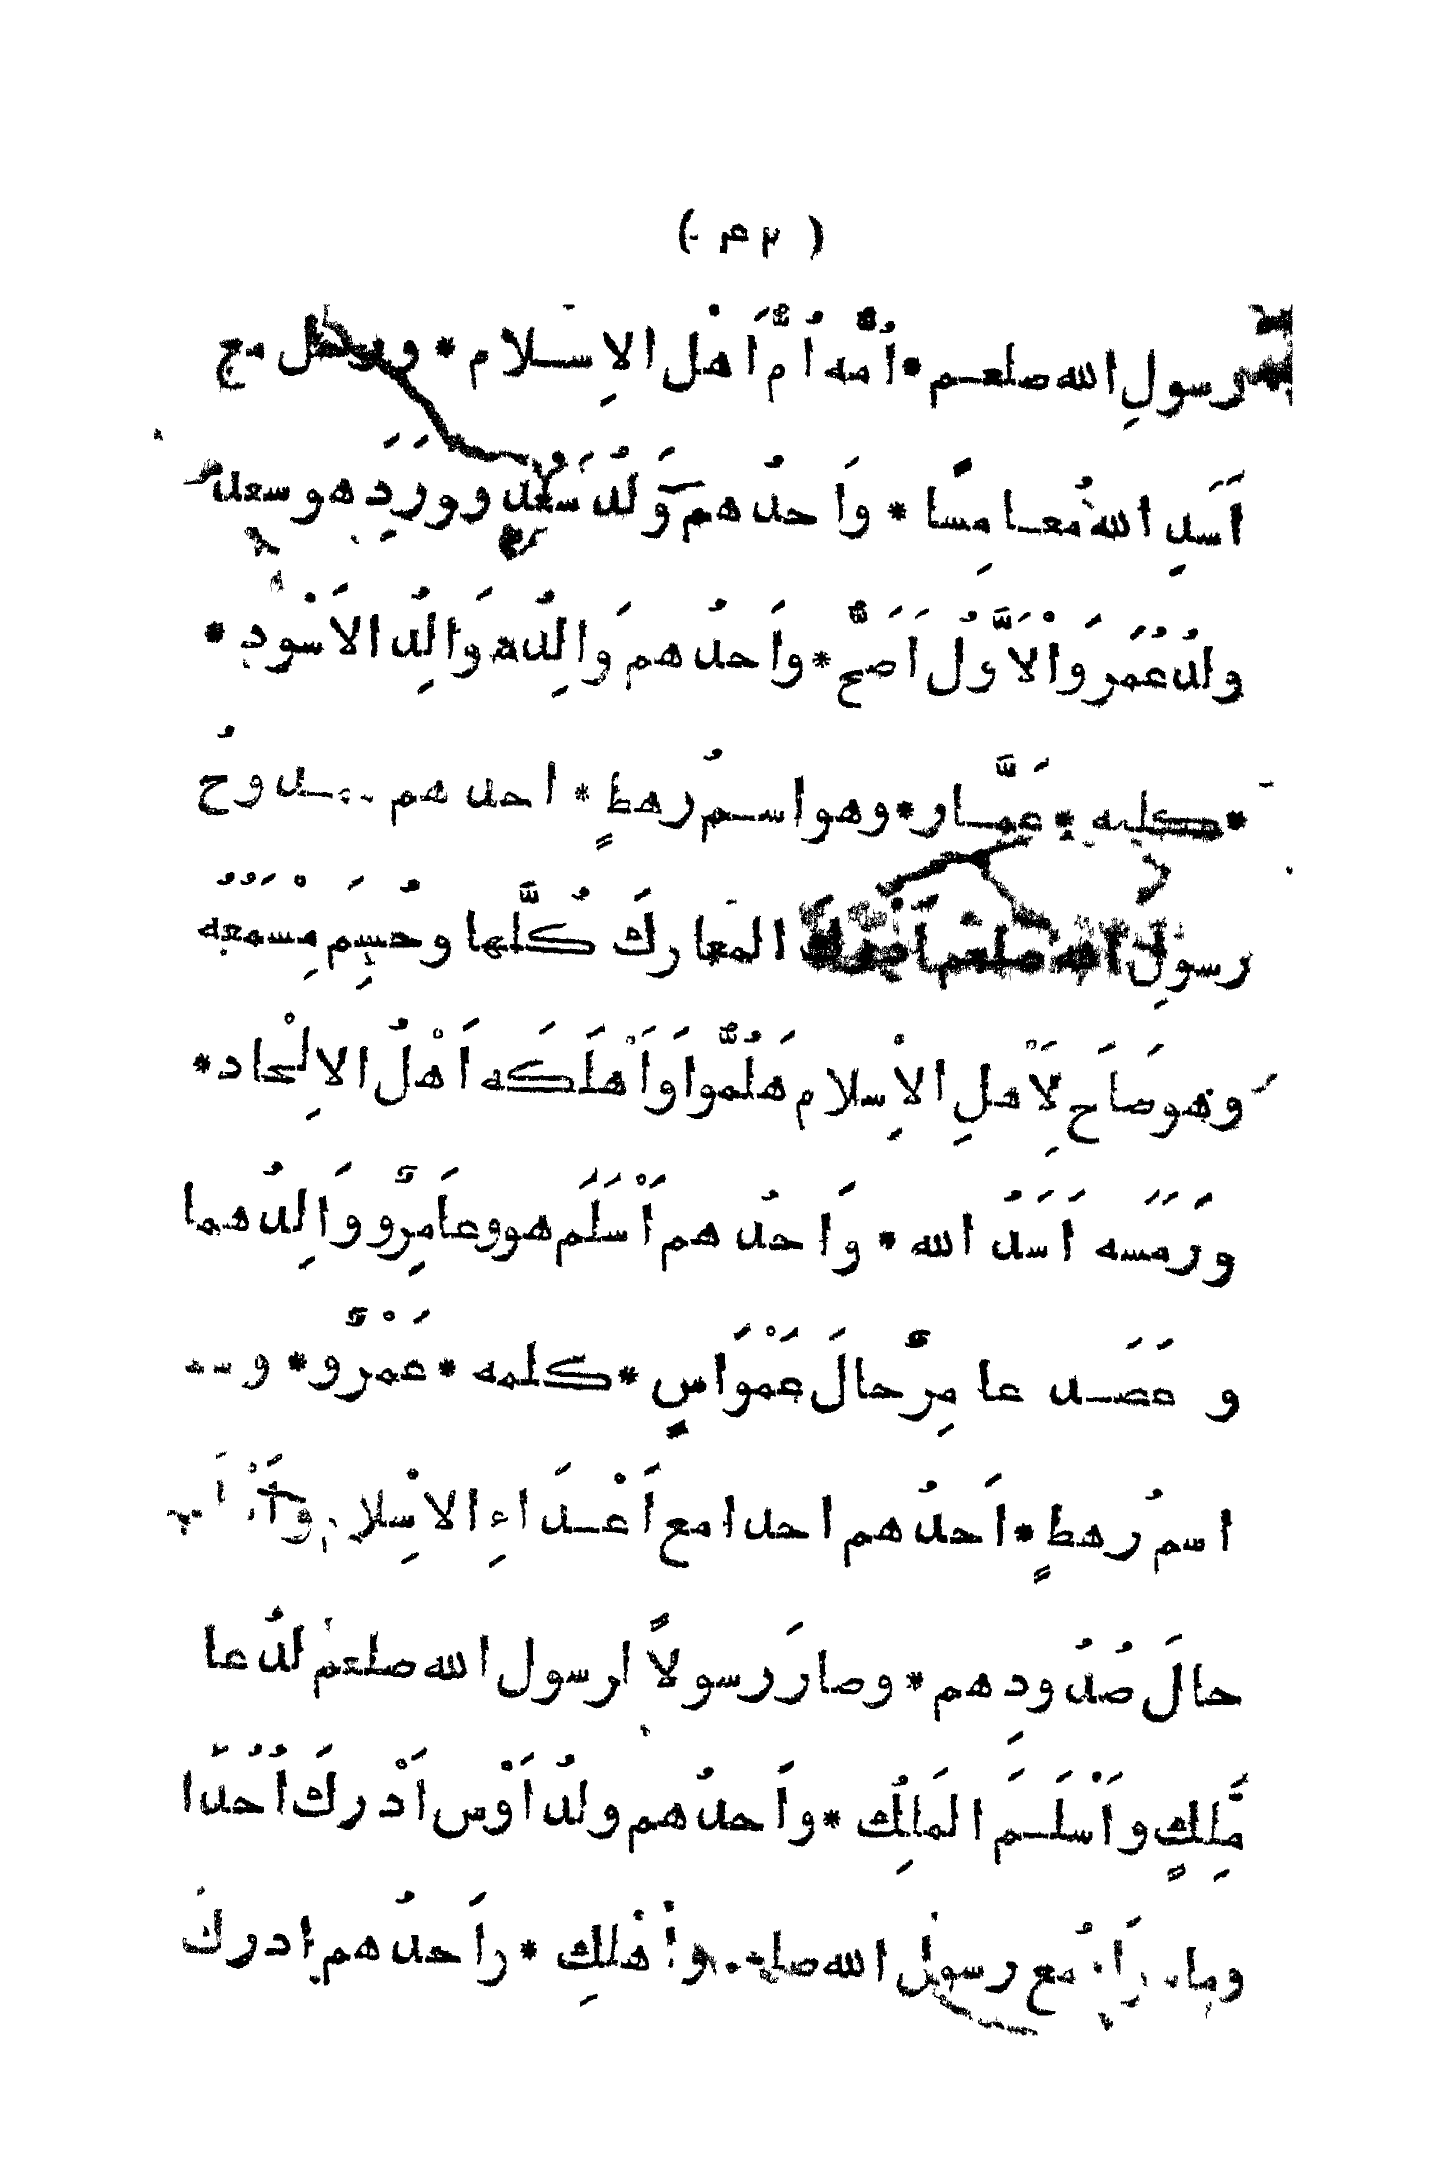 رسولِ الله صلعم * اُمّه اُمّ اَهْل الاِسْلام * و مع
اَسَدِ اللهُ معاً مِسًا * واَحدُهم وَلَدُ سَعْدٍ ووَرَدَ هو سعد
ولدُ عُمَرَ وَالْاَوَّلُ اَصَحّ * واَحدُهم وَالِدُه وَالِدُ الاَسْوَدِ *
* كلمه * عَمَّار * وهو اسمُ رهطٍ * احدهم
رسولِ الله صلعم المَعارك كُلَّها وحُسِمَ مِسْمَعُهُ
وَهو صَاحَ لِاَهلِ الْاِسلام هَلُمُّوا وَاَهْلَكَه اَهْلُ الاِلْحاد *
ورَمَسَه اَسَدُ الله * واَحدُهم اَسْلَمَ هو وعَامِرٌ ووَالِدُهما
و عَصَد عامِرٌ حالَ عَمْوَاسٍ * كلمه * عَمْرٌو * و
اسمُ رهطٍ * اَحدُهم احدا مع اَعْدَاءِ الاسِلام
حالَ صُدُودِهم * وصار رَسولاً لرسول الله صلعم لدُعا
مَلِكٍ واَسْلَم المَلِكُ * واَحدُهم ولدُ اَوْس اَدْرك اُحُدًا
مع رسول الله اهْلِك * واَحدُهم ادرك